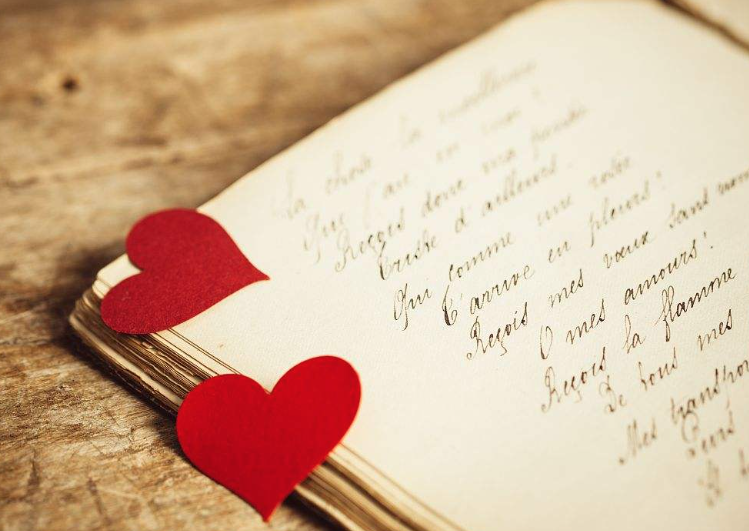 La chose la meilleure
Que j'ai en moi!
Reçois donc ma pensée
Triste d'ailleurs.
Qui comme une rosée
T'arrive en pleurs!
Reçois mes vœux sans
O mes amours!
Reçois la flamme
De tous mes
Mes